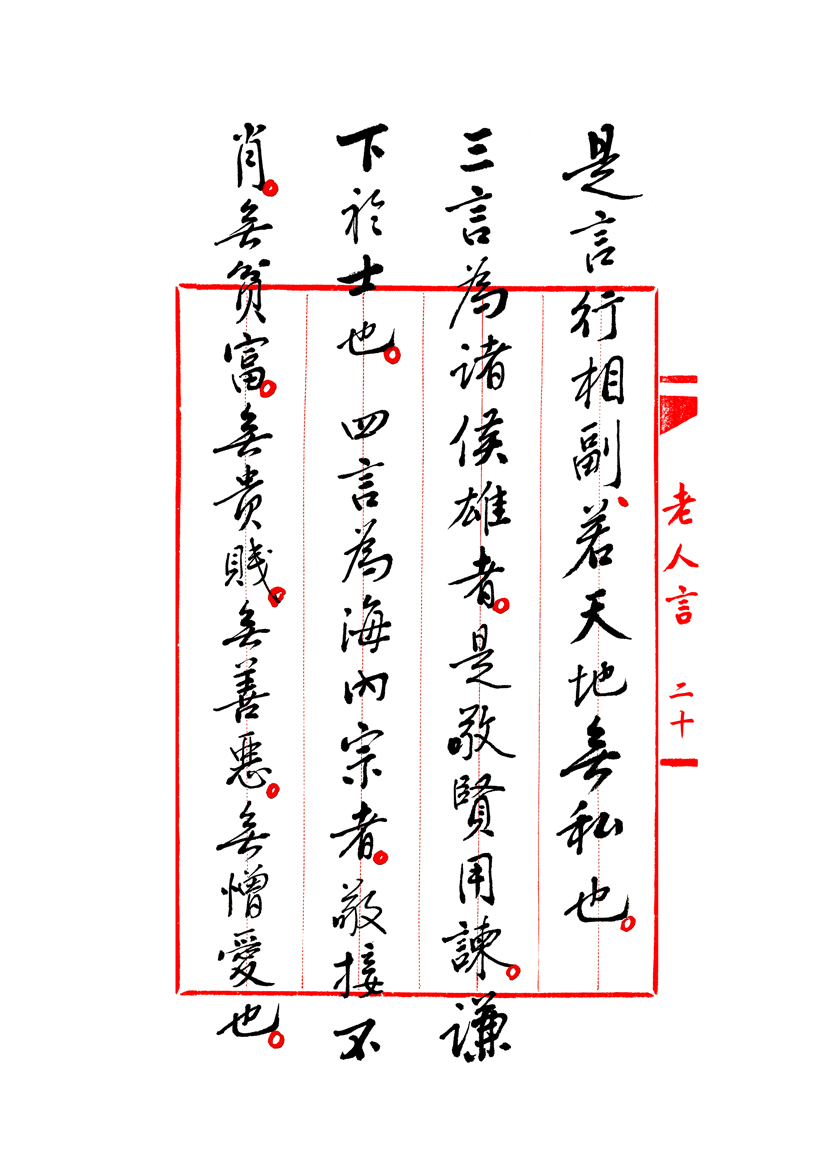 是言行相副、若天地無私也。
三言為諸侯雄者。是敬賢用諫。謙
下於士也。四言為海內宗者。敬接不
肖。無貧富。無貴賤。無善惡。無憎愛也。
老人言 二十